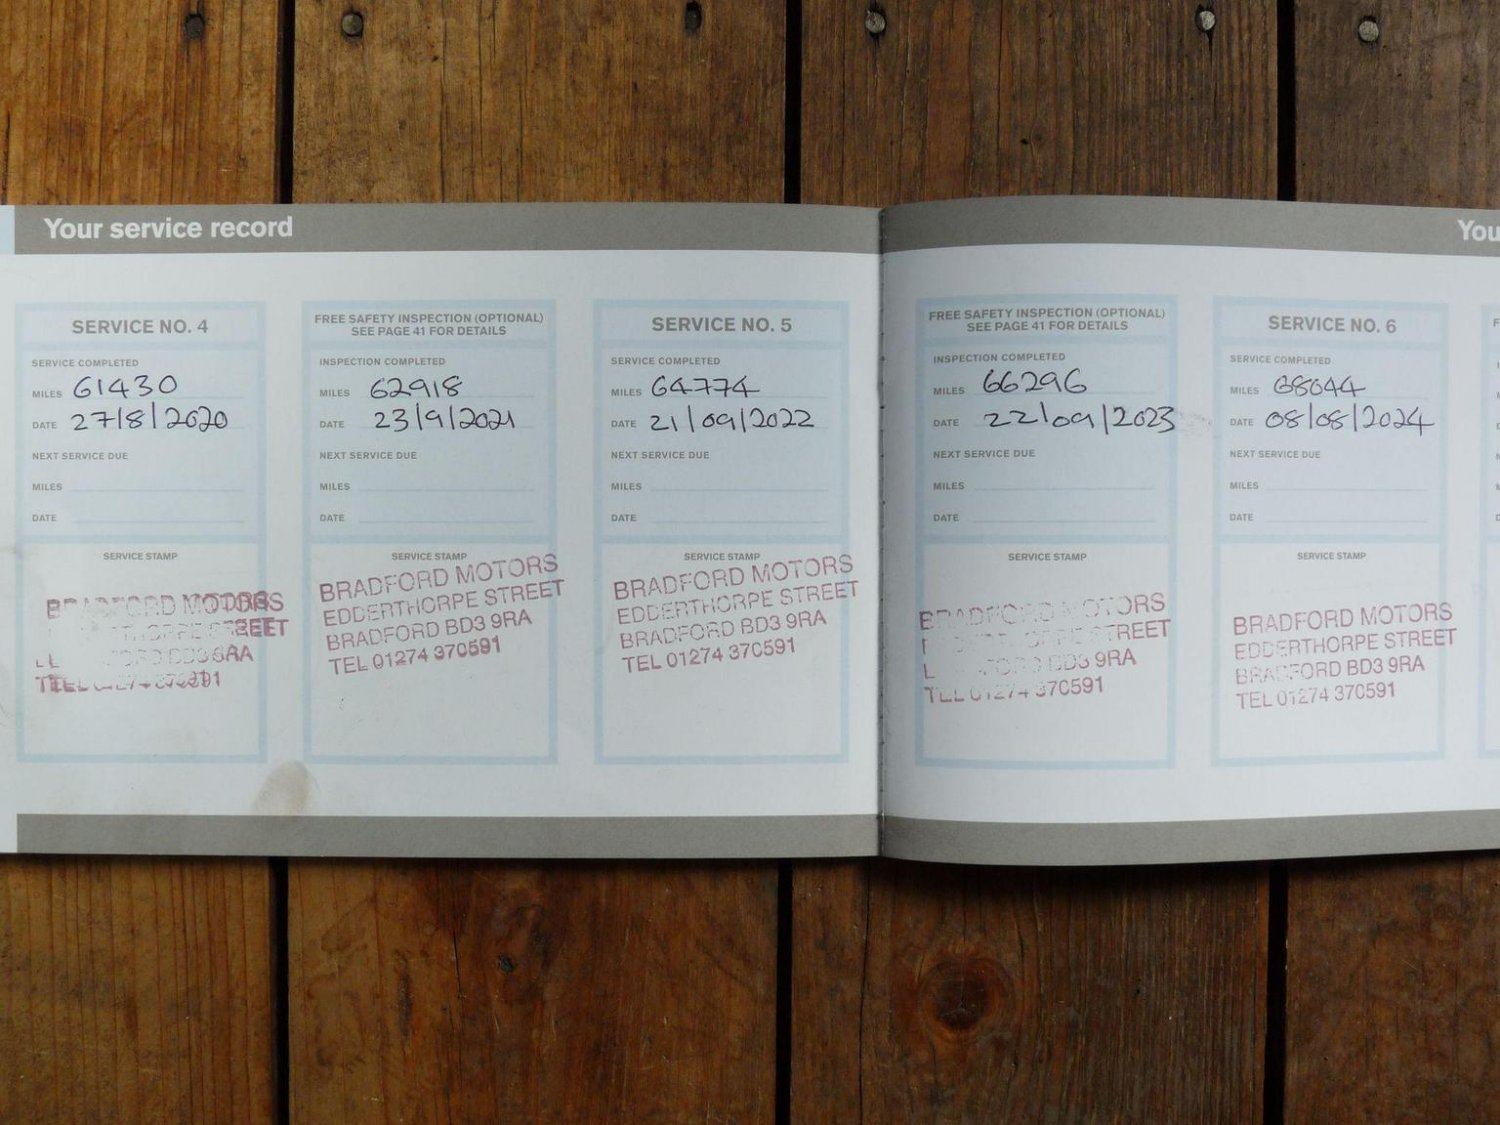 Your service record
You
SERVICE NO. 4
SERVICE COMPLETED
MILES 61430
DATE 27/8/2020
NEXT SERVICE DUE
MILES
DATE
SERVICE STAMP
BRADFORD MOTORS
STREET
TEL
FREE SAFETY INSPECTION (OPTIONAL)
SEE PAGE 41 FOR DETAILS
INSPECTION COMPLETED
MILES 62918
DATE 23/9/2021
NEXT SERVICE DUE
MILES
DATE
SERVICE STAMP
BRADFORD MOTORS
EDDERTHORPE STREET
BRADFORD BD3 9RA
TEL 01274 370591
SERVICE NO. 5
SERVICE COMPLETED
MILES 64774
DATE 21/09/2022
NEXT SERVICE DUE
MILES
DATE
SERVICE STAMP
BRADFORD MOTORS
EDDERTHORPE STREET
BRADFORD BD3 9RA
TEL 01274 370591
FREE SAFETY INSPECTION (OPTIONAL)
SEE PAGE 41 FOR DETAILS
INSPECTION COMPLETED
MILES 66296
DATE 22/09/2023
NEXT SERVICE DUE
MILES
DATE
SERVICE STAMP
BRADFORD MOTORS
STREET
9RA
TEL 01274 370591
SERVICE NO. 6
SERVICE COMPLETED
MILES 68044
DATE 08/08/2024
NEXT SERVICE DUE
MILES
DATE
SERVICE STAMP
BRADFORD MOTORS
EDDERTHORPE STREET
BRADFORD BD3 9RA
TEL 01274 370591